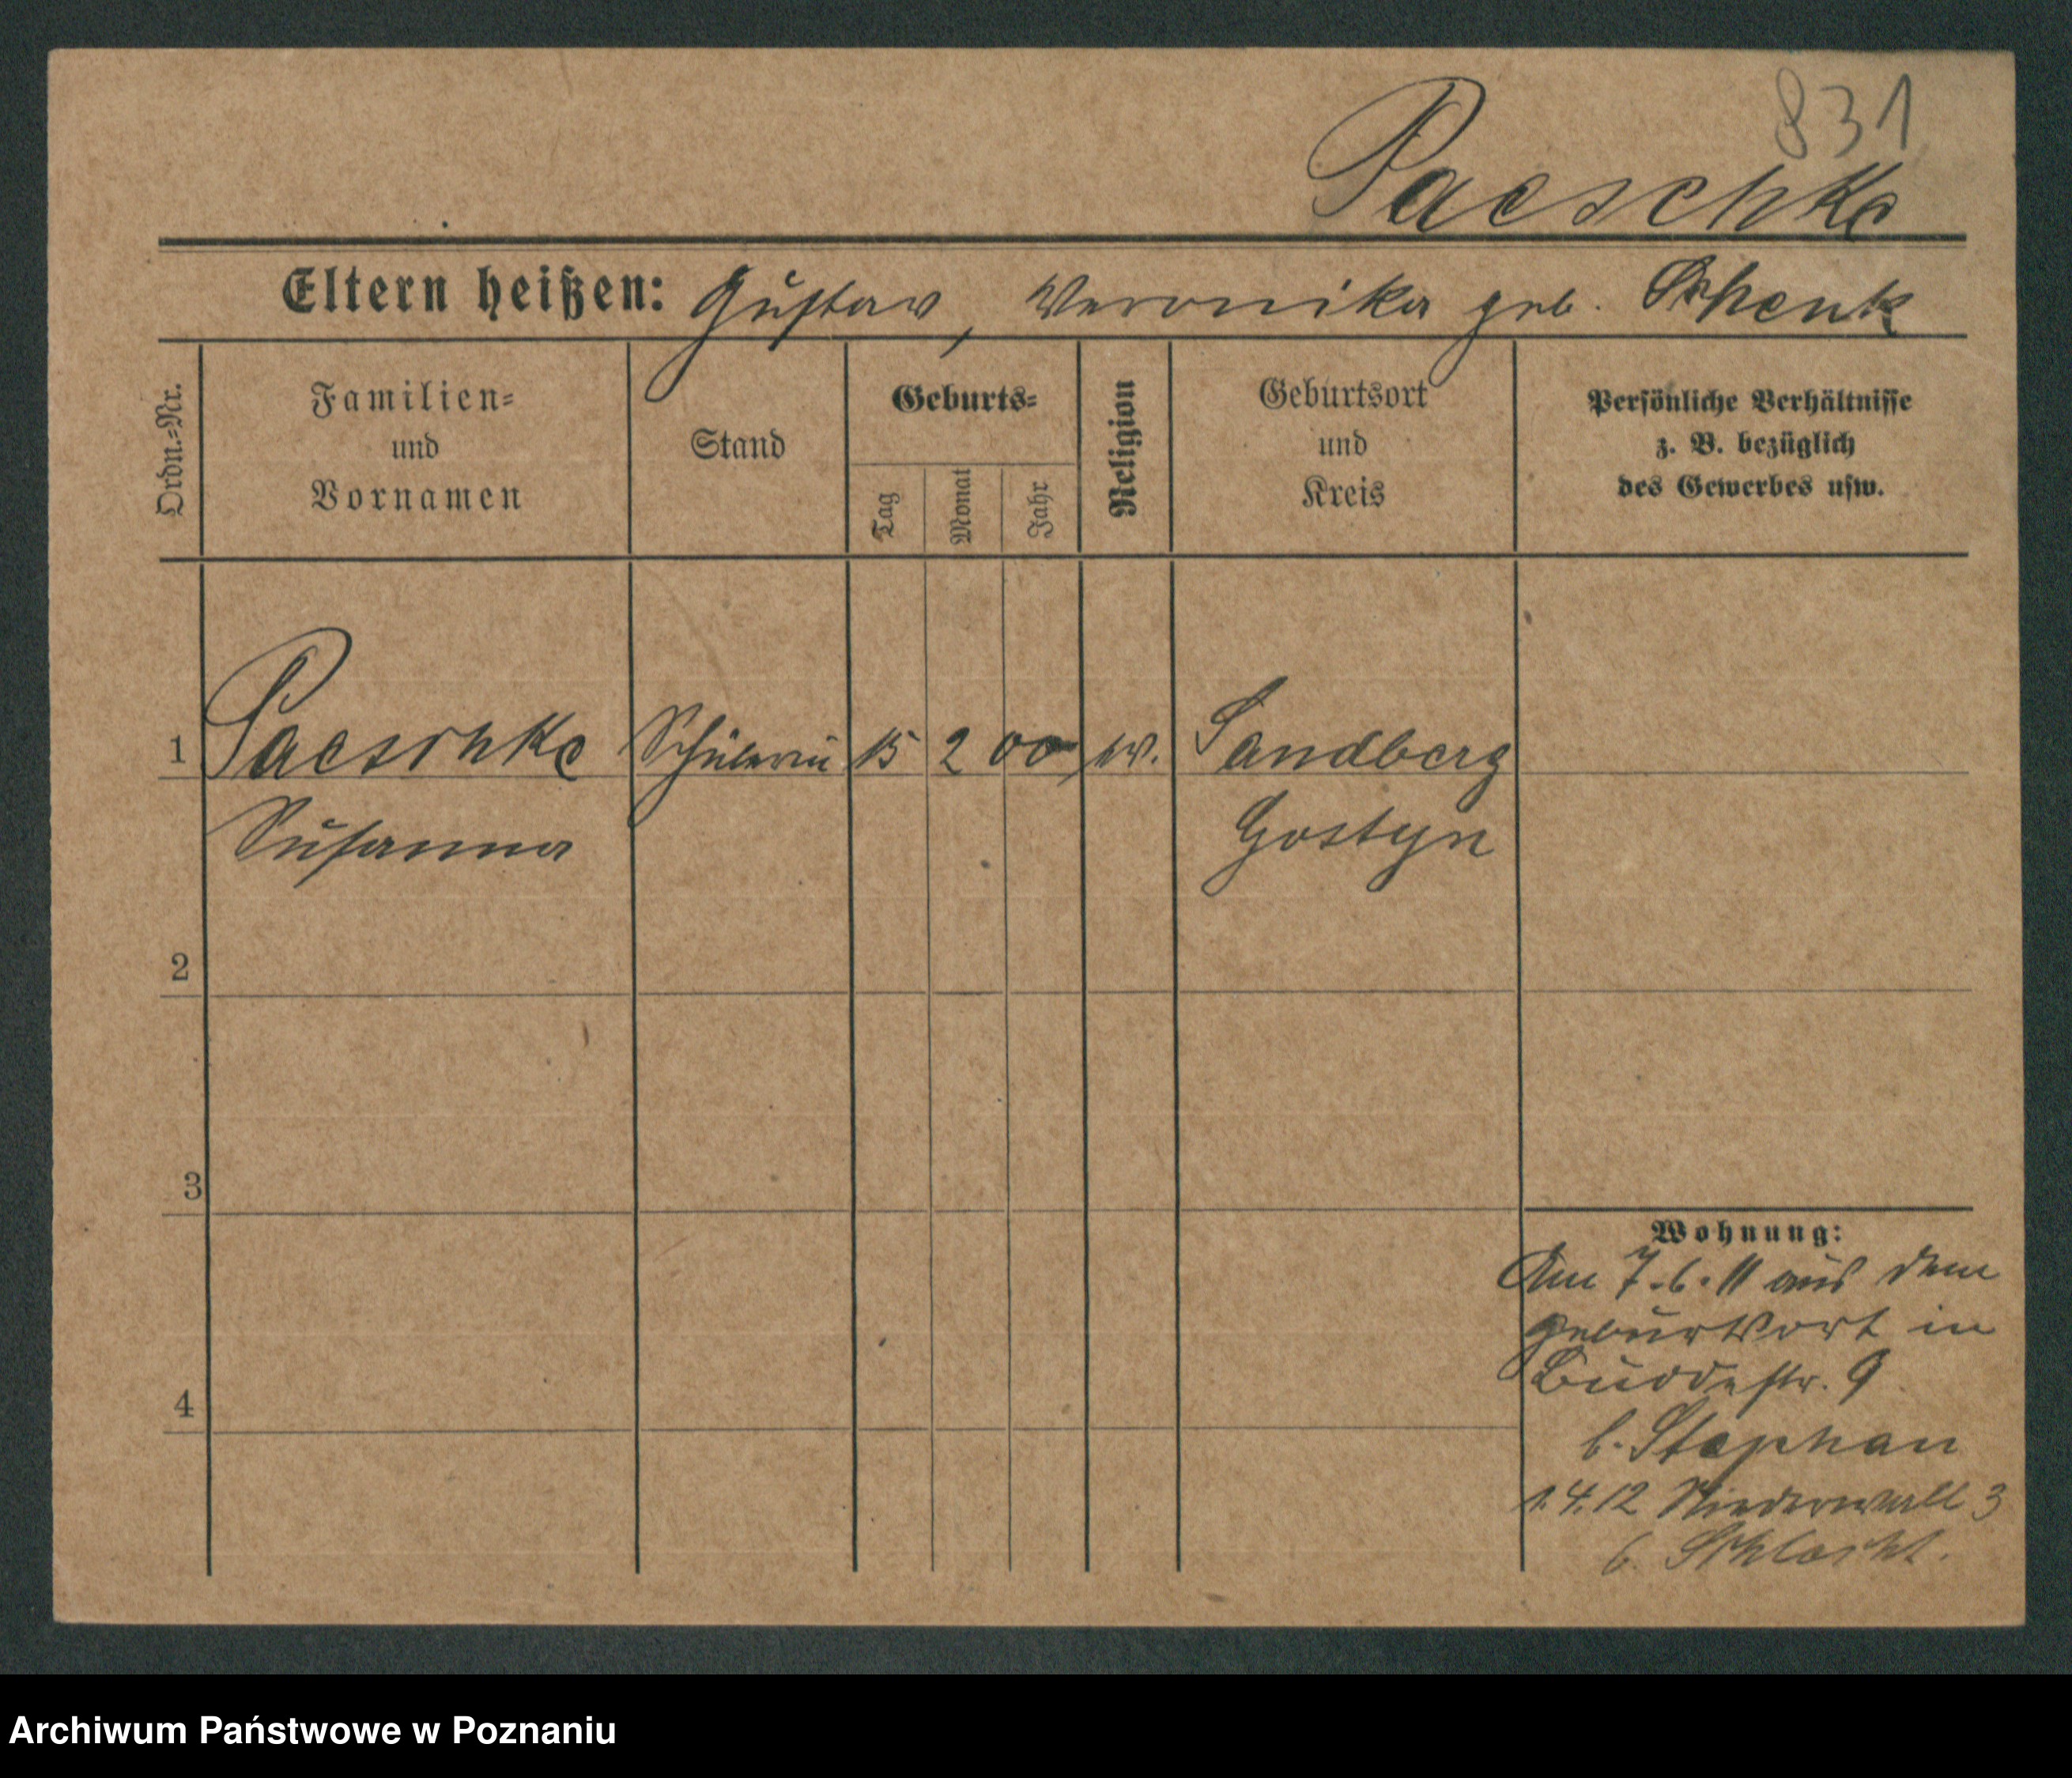 831
Paeschke
Eltern heißen: Gustav, Veronika geb. Schenk
Ordn.=Nr.
Familien=
und
Vornamen
Stand
Geburts=
Tag
Monat
Jahr
Religion
Geburtsort
und
Kreis
Persönliche Verhältnisse
z. B. bezüglich
des Gewerbes usw.
1 Paeschke Schülerin 15 2 00 ev. Sandberg
Susanna Gostyn
2
3
4
Wohnung:
Am 7.6.11 aus dem
Geburtsort in
Buddestr. 9
b. Stephan
1.4.12 Niederwall 3
b. Schlecht.